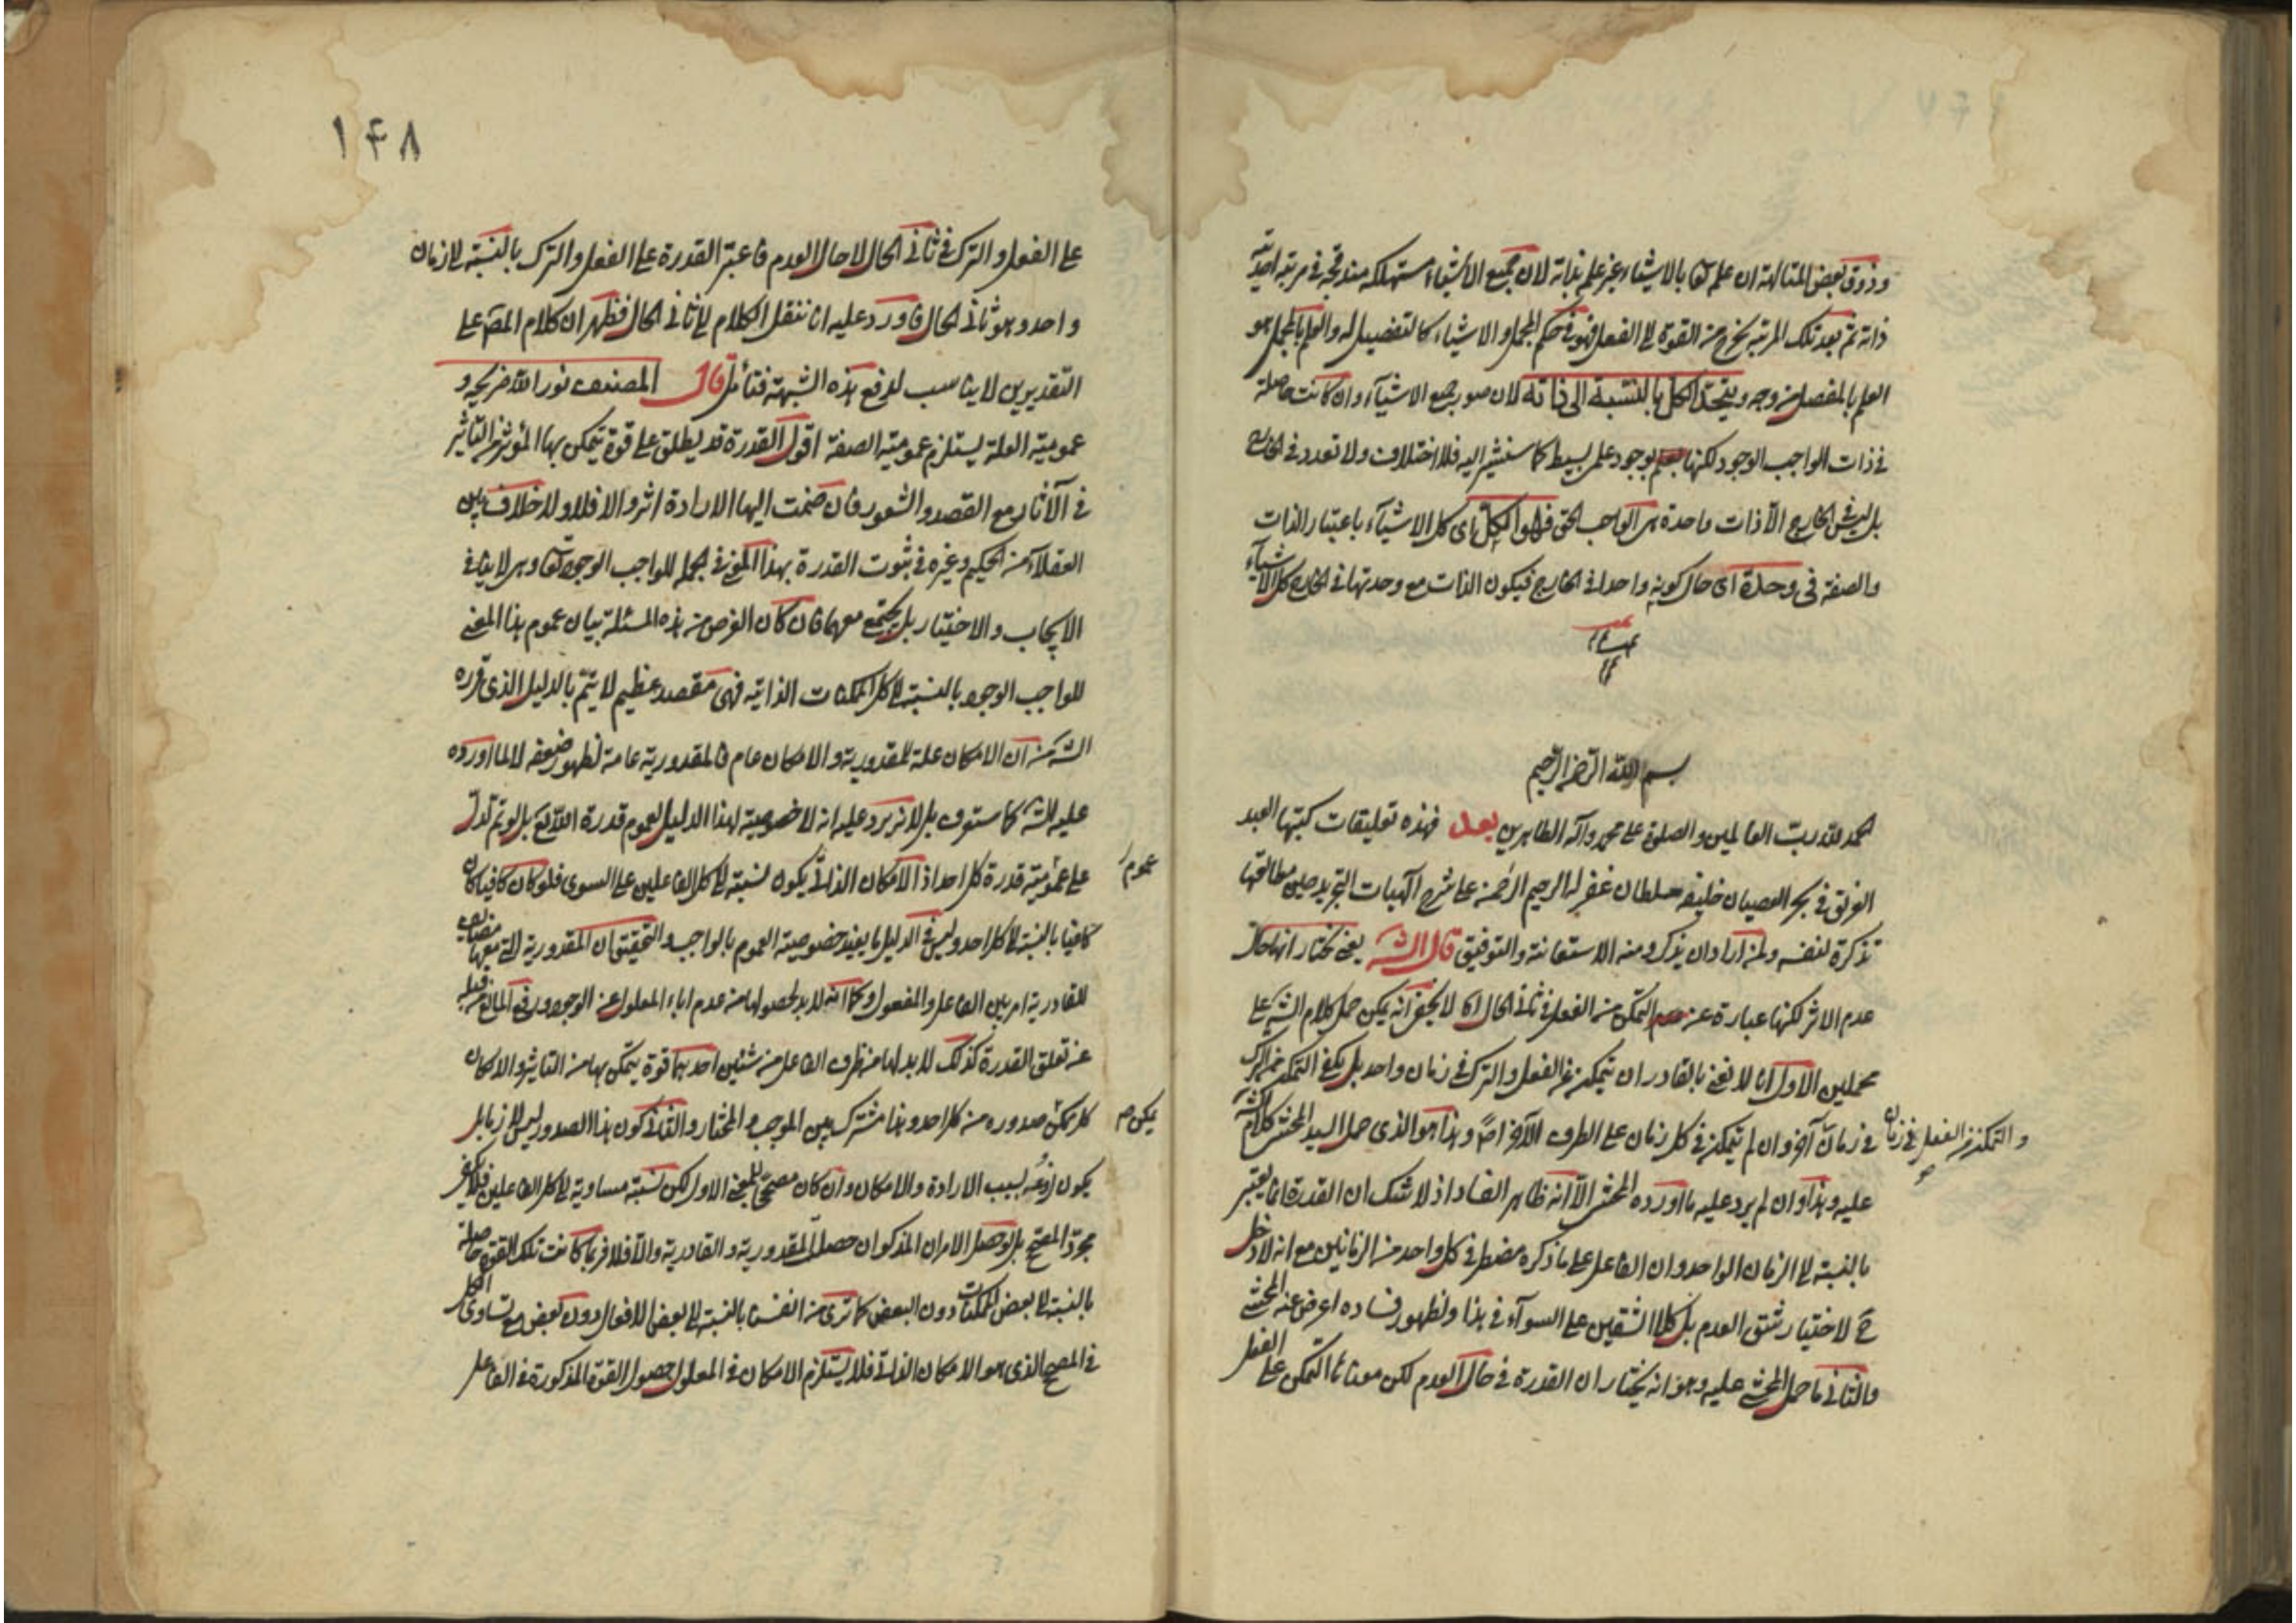 وذوق بعض المتالهة ان علمه تعا بالاشياء عين علمه بذاته لان جميع الاشياء مستهلكة مندمجة في مرتبة احدية
ذاته ثم بعد تلك المرتبة يخرج من القوة الى الفعل فهو في حكم المجمل والاشياء كالتفصيل له والعلم بالمجمل هو
العلم بالمفصل من وجه ويتحد الكل بالنسبة الى ذاته لان صور جميع الاشياء وان كانت حاصلة
في ذات الواجب الوجود لكنها بوجود علمى بسيط كما سنشير اليه فلا اختلاف ولا تعدد في الخارج
بل ليس في الخارج الا ذات واحدة هى الواجب الحق فهو الكل اى كل الاشياء باعتبار الذات
والصفة في وحدة اى حال كونه واحدا في الخارج فيكون الذات مع وحدتها في الخارج كل الاشياء
بسم الله الرحمن الرحيم
الحمد لله رب العالمين والصلوة على محمد وآله الطاهرين بعد فهذه تعليقات كتبها العبد
الغريق في بحر العصيان خليفه سلطان غفر له الرحيم الرحمن على شرح آلهيات التجريد حين مطالعتها
تذكرة لنفسه ولمن اراد ان يذكر ومنه الاستعانة والتوفيق قال الشـ يعنى نختار انها حال
عدم الاثر لكنها عبارة عن التمكن من الفعل في ثانى الحال لا يخفى انه يمكن حمل كلام الشـ على
محملين الاول انا لا نعنى بالقادر ان يتمكن من الفعل والترك في زمان واحد بل يكفى التمكن من الترك
في زمان والتمكن من الفعل في زمان آخر وان لم يتمكن في كل زمان على الطرف الآخر وهذا هو الذى حمل السيد المحشى كلام الشـ
عليه وهذا وان لم يرد عليه ما اورده المحشى الا انه ظاهر الفساد اذ لا شك ان القدرة انما يعتبر
بالنسبة الى الزمان الواحد وان الفاعل على ما ذكره مضطر في كل واحد من الزمانين مع انه لا دخل
ح لاختيار شق العدم بل كلا الشقين على السواء في هذا ولظهور فساده اعرض عنه المحشى
والثانى ما حمل المحشى عليه وهو انه يختار ان القدرة في حال العدم لكن معناها التمكن على الفعل
١۴٨
على الفعل والترك في ثانى الحال لا حال العدم فاعتبر القدرة على الفعل والترك بالنسبة الى زمان
واحد وهو ثانى الحال فاورد عليه انا ننقل الكلام الى ثانى الحال فظهر ان كلام المص على
التقديرين لا يناسب لدفع هذه الشبهة فتأمل قال المصنف نور الله ضريحه و
عمومية العلة يستلزم عمومية الصفة اقول القدرة قد يطلق على قوة يتمكن بها المؤثر من التاثير
في الآثار مع القصد والشعور فان ضمت اليها الارادة اثر والا فلا ولا خلاف بين
العقلاء من الحكيم وغيره في ثبوت القدرة بهذا المعنى في الجملة للواجب الوجود تعا وهى لا ينافى
الايجاب والاختيار بل يجتمع معهما فان كان الغرض من هذه المسئلة بيان عموم هذا المعنى
للواجب الوجود بالنسبة الى كل الممكنات الذاتية فهى مقصد عظيم لا يتم بالدليل الذى قرره
الشـ من ان الامكان علة للمقدورية والامكان عام فالمقدورية عامة لظهور ضعفه لا لما اورده
عليه الشـ كما ستعرف بل لانه يرد عليه انه لا خصوصية لهذا الدليل بعموم قدرة الله تع بل لو تم لدل
على عمومية قدرة كل احد اذ الامكان الذاتى يكون نسبته الى كل الفاعلين على السوى فلو كان كافيا كان
عموم
كافيا بالنسبة الى كل احد وليس في الدليل ما يفيد خصوصية العموم بالواجب والتحقيق ان المقدورية التى معها مضايف
للقادرية امر بين الفاعل والمفعول وكما انه لا بد لحصولها من عدم اباء المعلول عن الوجود ورفع المانع من قبله
عن تعلق القدرة كذلك لا بد لها من طرف الفاعل من شيئين احدهما قوة يتمكن بها من التاثير والا لكان
كل ممكن صدوره من كل احد وهذا مشترك بين الموجب والمختار والثانى كون هذا الصدور ليس لازما بل
يمكن
يكون نوعه بسبب الارادة والامكان وان كان مصححا للمعنى الاول لكن نسبته مساوية الى كل الفاعلين فلا يكفى
مجرد المصحح بل لو حصل الامران المذكوران حصل المقدورية والقادرية والا فلا فربما كانت تلك القوة حاصلة
بالنسبة الى بعض الممكنات دون البعض كما ترى من انفسنا بالنسبة الى بعض الافعال دون بعض مع تساوى الكل
في المصحح الذى هو الامكان الذاتى فلا يستلزم الامكان في المعلول حصول القوة المذكورة في الفاعل